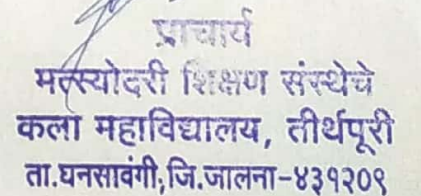 प्राचार्य
मत्स्योदरी शिक्षण संस्थेचे
कला महाविद्यालय, तीर्थपूरी
ता.घनसावंगी,जि.जालना-४३१२०९